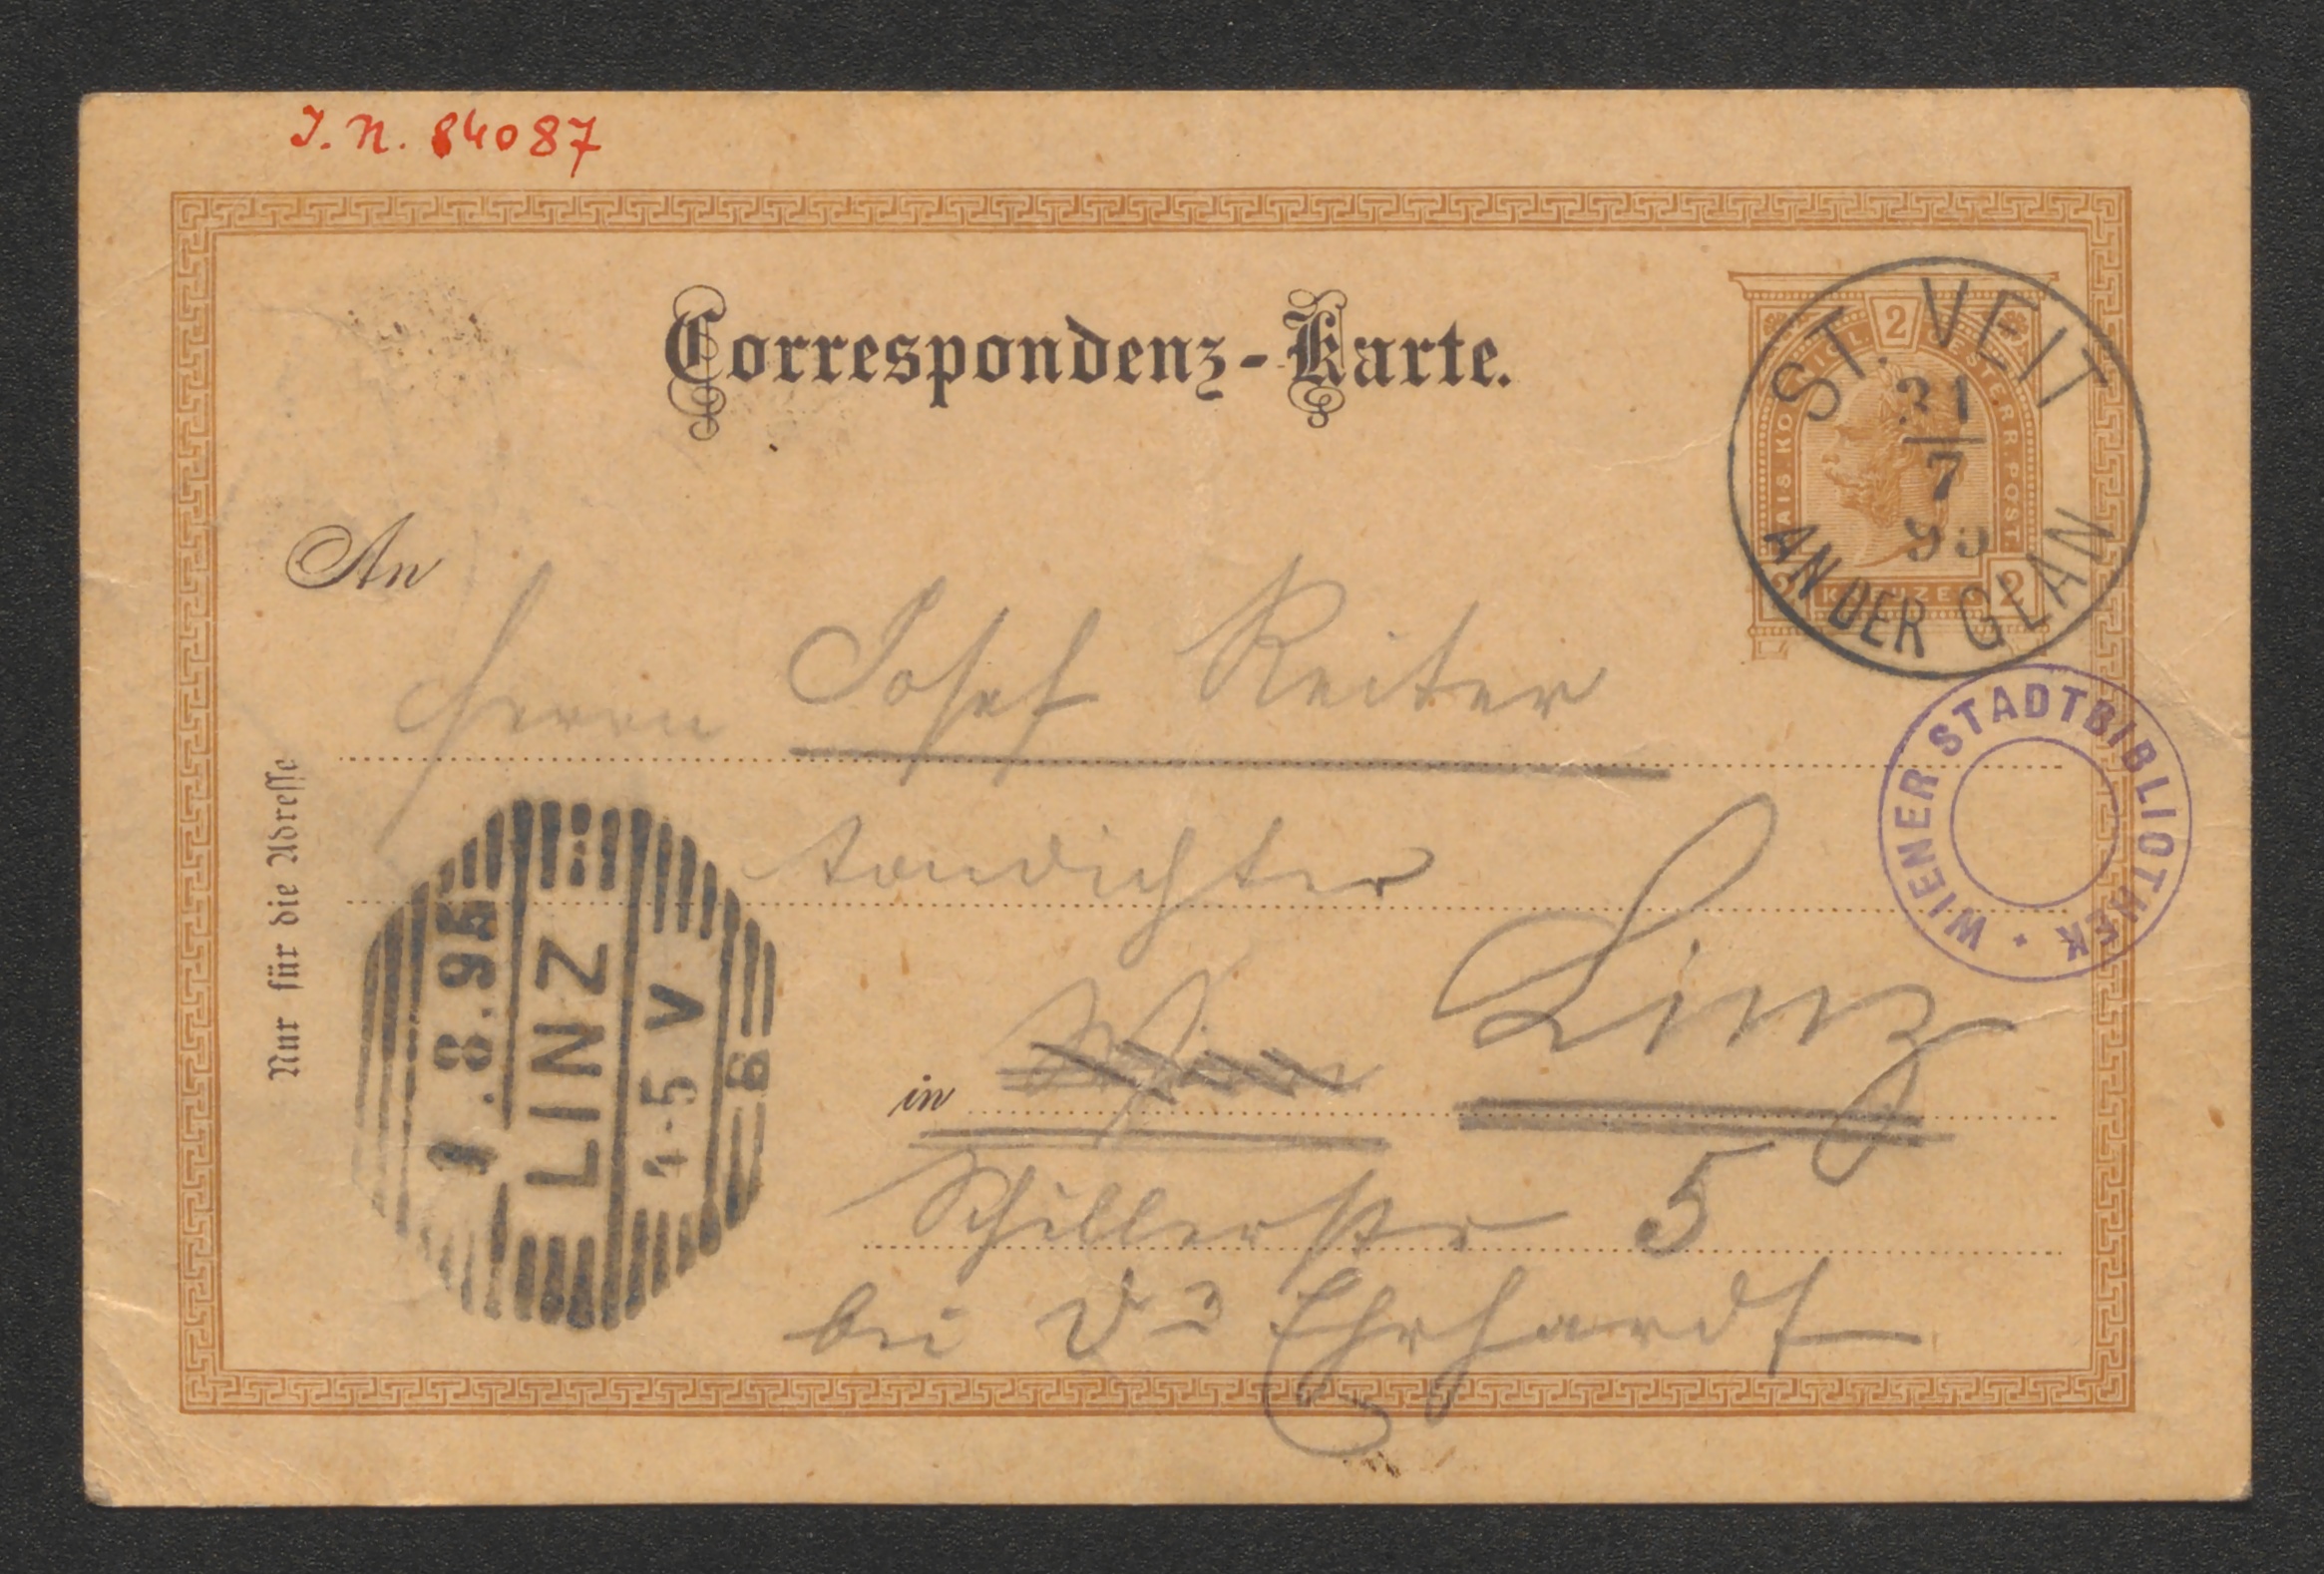 J. N. 84087
Correspondenz-Karte.
2
KAIS. KOENIGL. OESTERR. POST
2 KREUZER 2
ST. VEIT
31
7
95
AN DER GLAN
An
Herrn Josef Reiter
WIENER STADTBIBLIOTHEK
Tondichter
Nur für die Adresse
1.8.95
LINZ
4-5 V
8
in Wien Linz
Schillerstr 5
bei Dr Ehrhardt